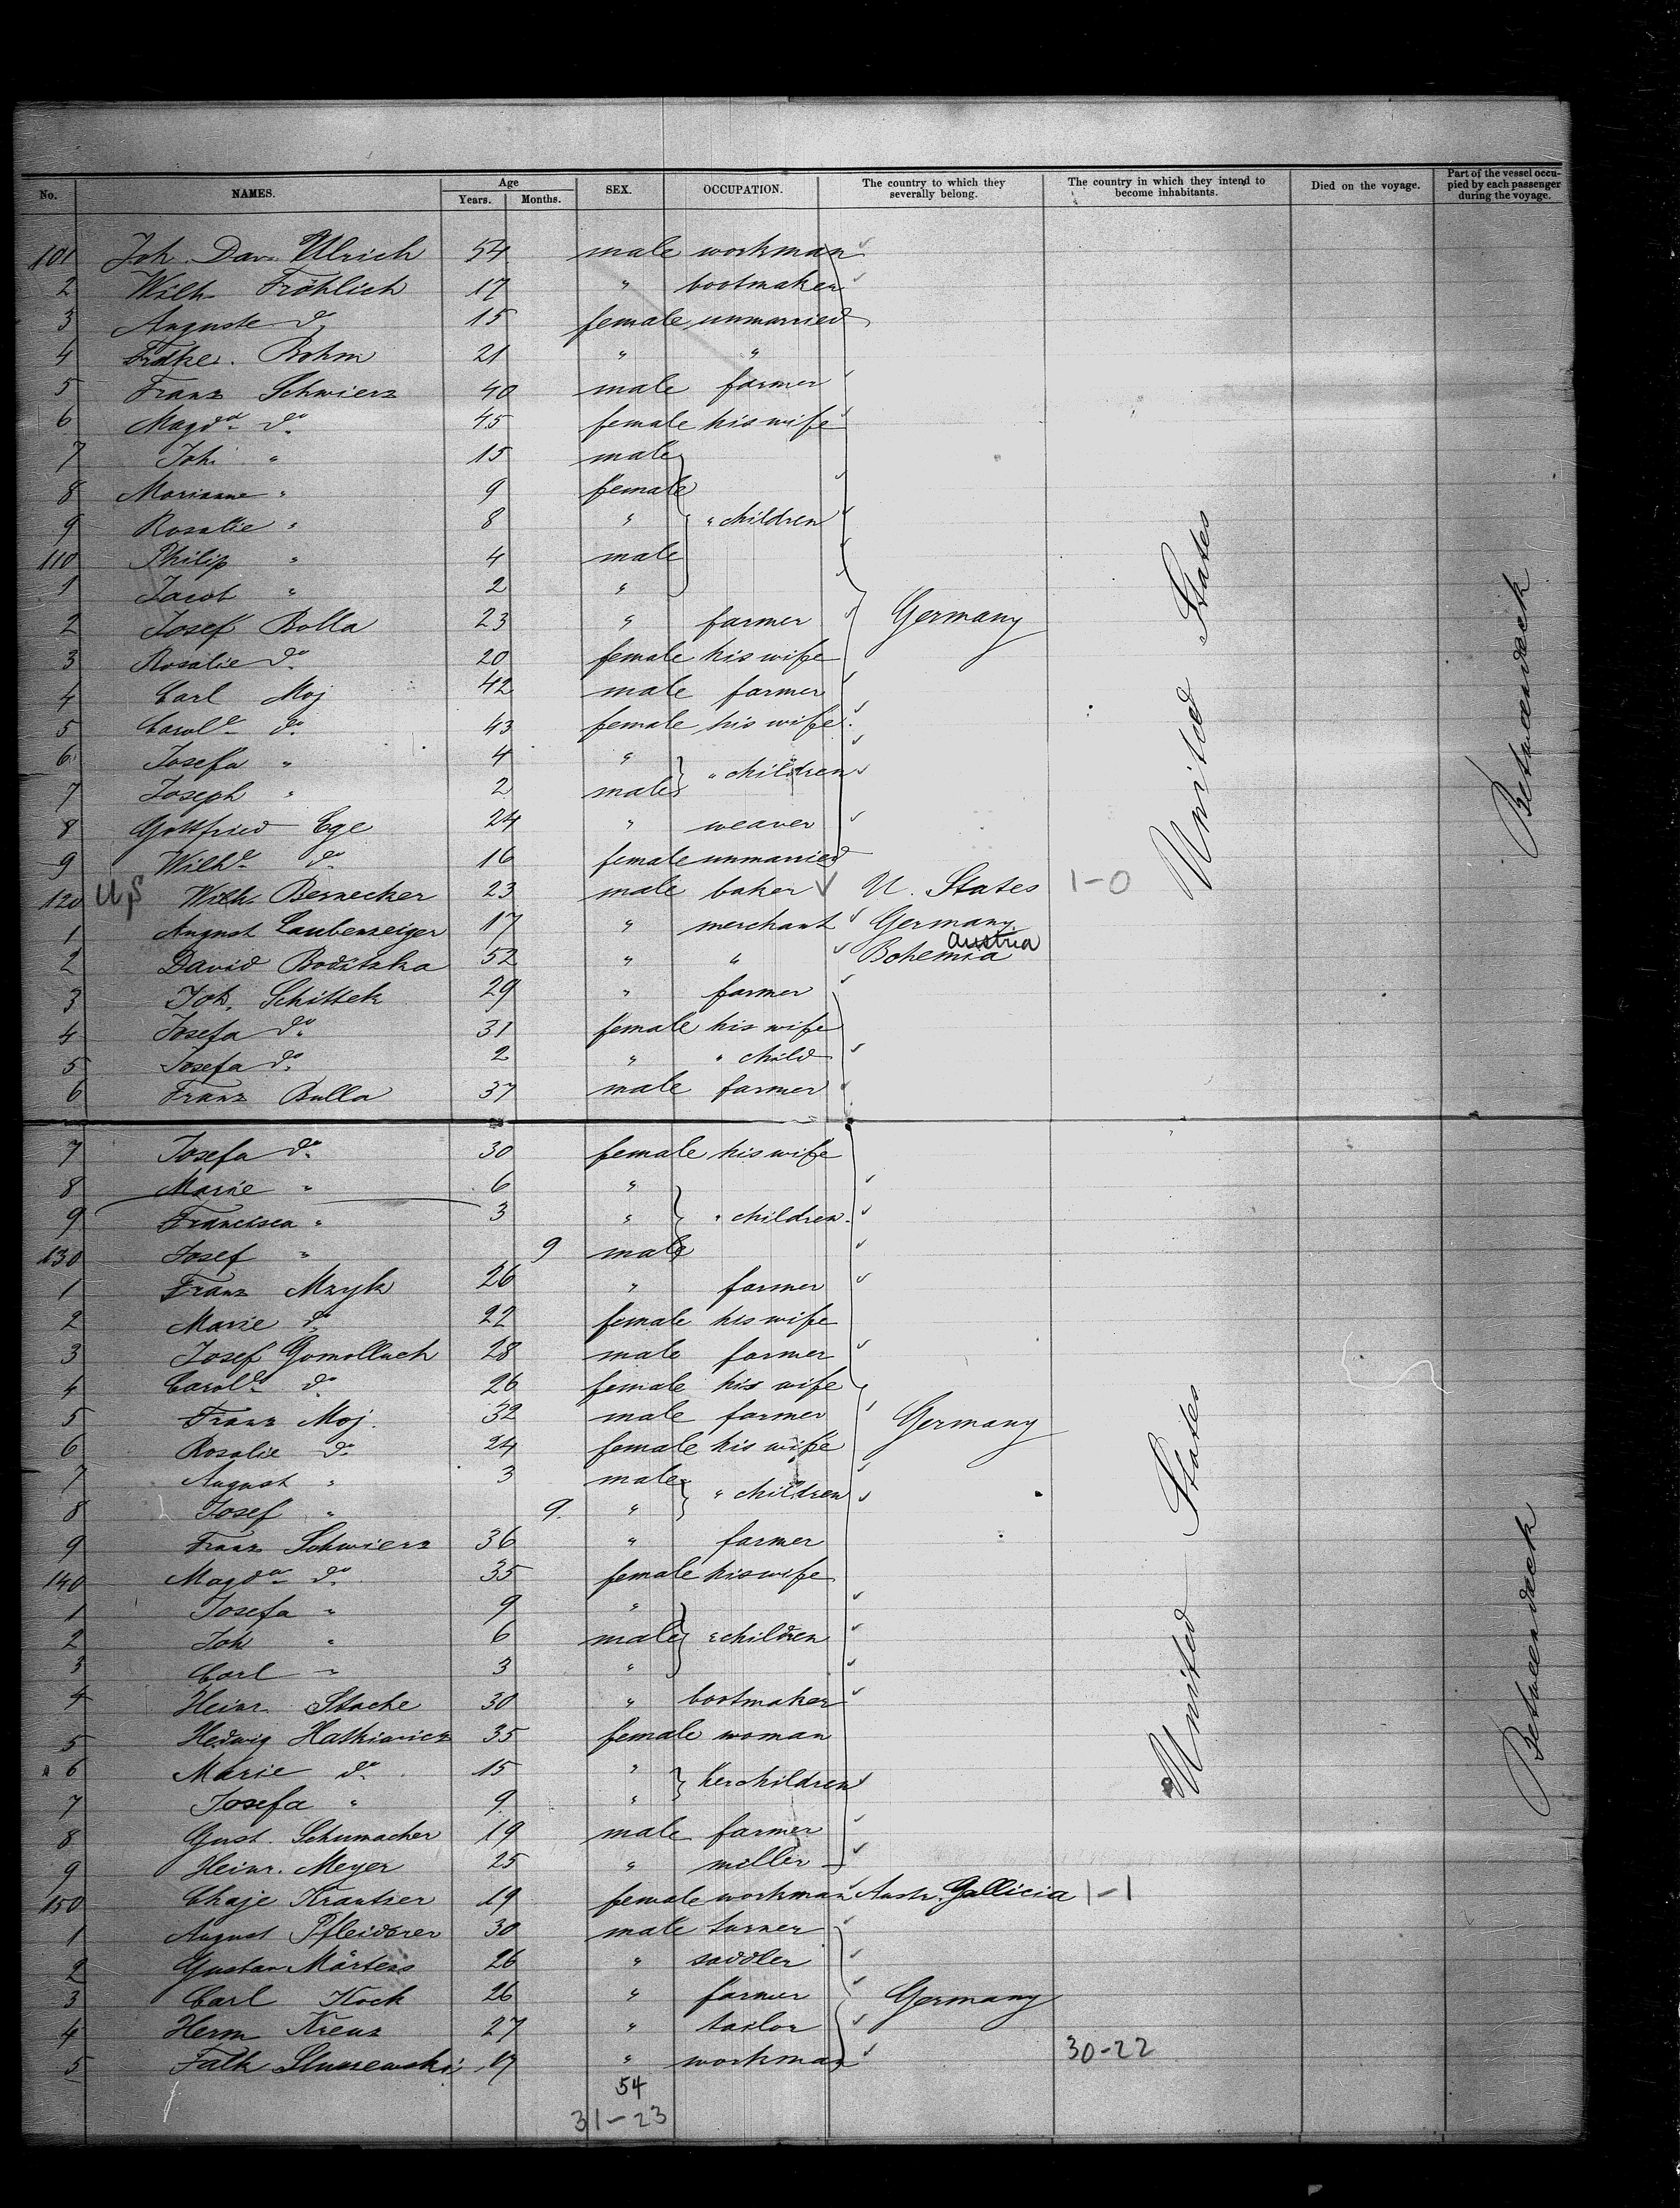 No. NAMES. Age Years. Months. SEX. OCCUPATION. The country to which they severally belong. The country in which they intend to become inhabitants. Died on the voyage. Part of the vessel occupied by each passenger during the voyage.
101 Joh. Dav. Ulrich 54 male workman
2 Wilh. Fröhlich 17 " bootmaker
3 Auguste do 15 female unmarried
4 Fridke. Bohm 21 " "
5 Franz Schwierz 40 male farmer
6 Magda do 45 female his wife
7 Joh. " 15 male
8 Marianne " 9 female
9 Rosalie " 8 " " children
110 Philip " 4 male
1 Jacob " 2 "
2 Josef Bolla 23 " farmer Germany
3 Rosalie do 20 female his wife
4 Carl Moj 42 male farmer
5 Carole do 43 female his wife
6 Josefa " 4 " " children
7 Joseph " 2 male
8 Gottfried Ege 24 " weaver
9 Wilhe do 16 female unmarried
120 US Wilh. Bernecker 23 male baker U. States 1-0
1 August Laubenzeiger 17 " merchant Germany
2 David Boditzka 52 " " Bohemia Austria
3 Joh. Schittek 29 " farmer
4 Josefa do 31 female his wife
5 Josefa do 2 " " child
6 Franz Bulla 37 male farmer
United States
Betweendeck
7 Josefa do 30 female his wife
8 Marie " 6 "
9 Francisca " 3 " " children
130 Josef " 9 male
1 Franz Mzyk 26 " farmer
2 Marie do 22 female his wife
3 Josef Gomolluch 28 male farmer
4 Carole do 26 female his wife
5 Franz Moj. 32 male farmer Germany
6 Rosalie do 24 female his wife
7 August " 3 male " children
8 Josef " 9 "
9 Franz Schwierz 36 " farmer
140 Magda do 35 female his wife
1 Josefa " 9 "
2 Joh " 6 male " children
3 Carl " 3 "
4 Heinr. Stache 30 " bootmaker
5 Hedwig Hatkiewicz 35 female woman
6 Marie do 15 " her children
7 Josefa " 9 "
8 Gust. Schumacher 19 male farmer
9 Heinr. Meyer 25 " miller
150 Chaje Krantzer 19 female workman Austr. Gallicia 1-1
1 August Pfleiderer 30 male turner
2 Gustav Märtens 26 " saddler
3 Carl Kock 26 " farmer Germany
4 Herm Kreuz 27 " tailor
5 Falk 17 " workman 30-22
United States
Betweendeck
54
31-23